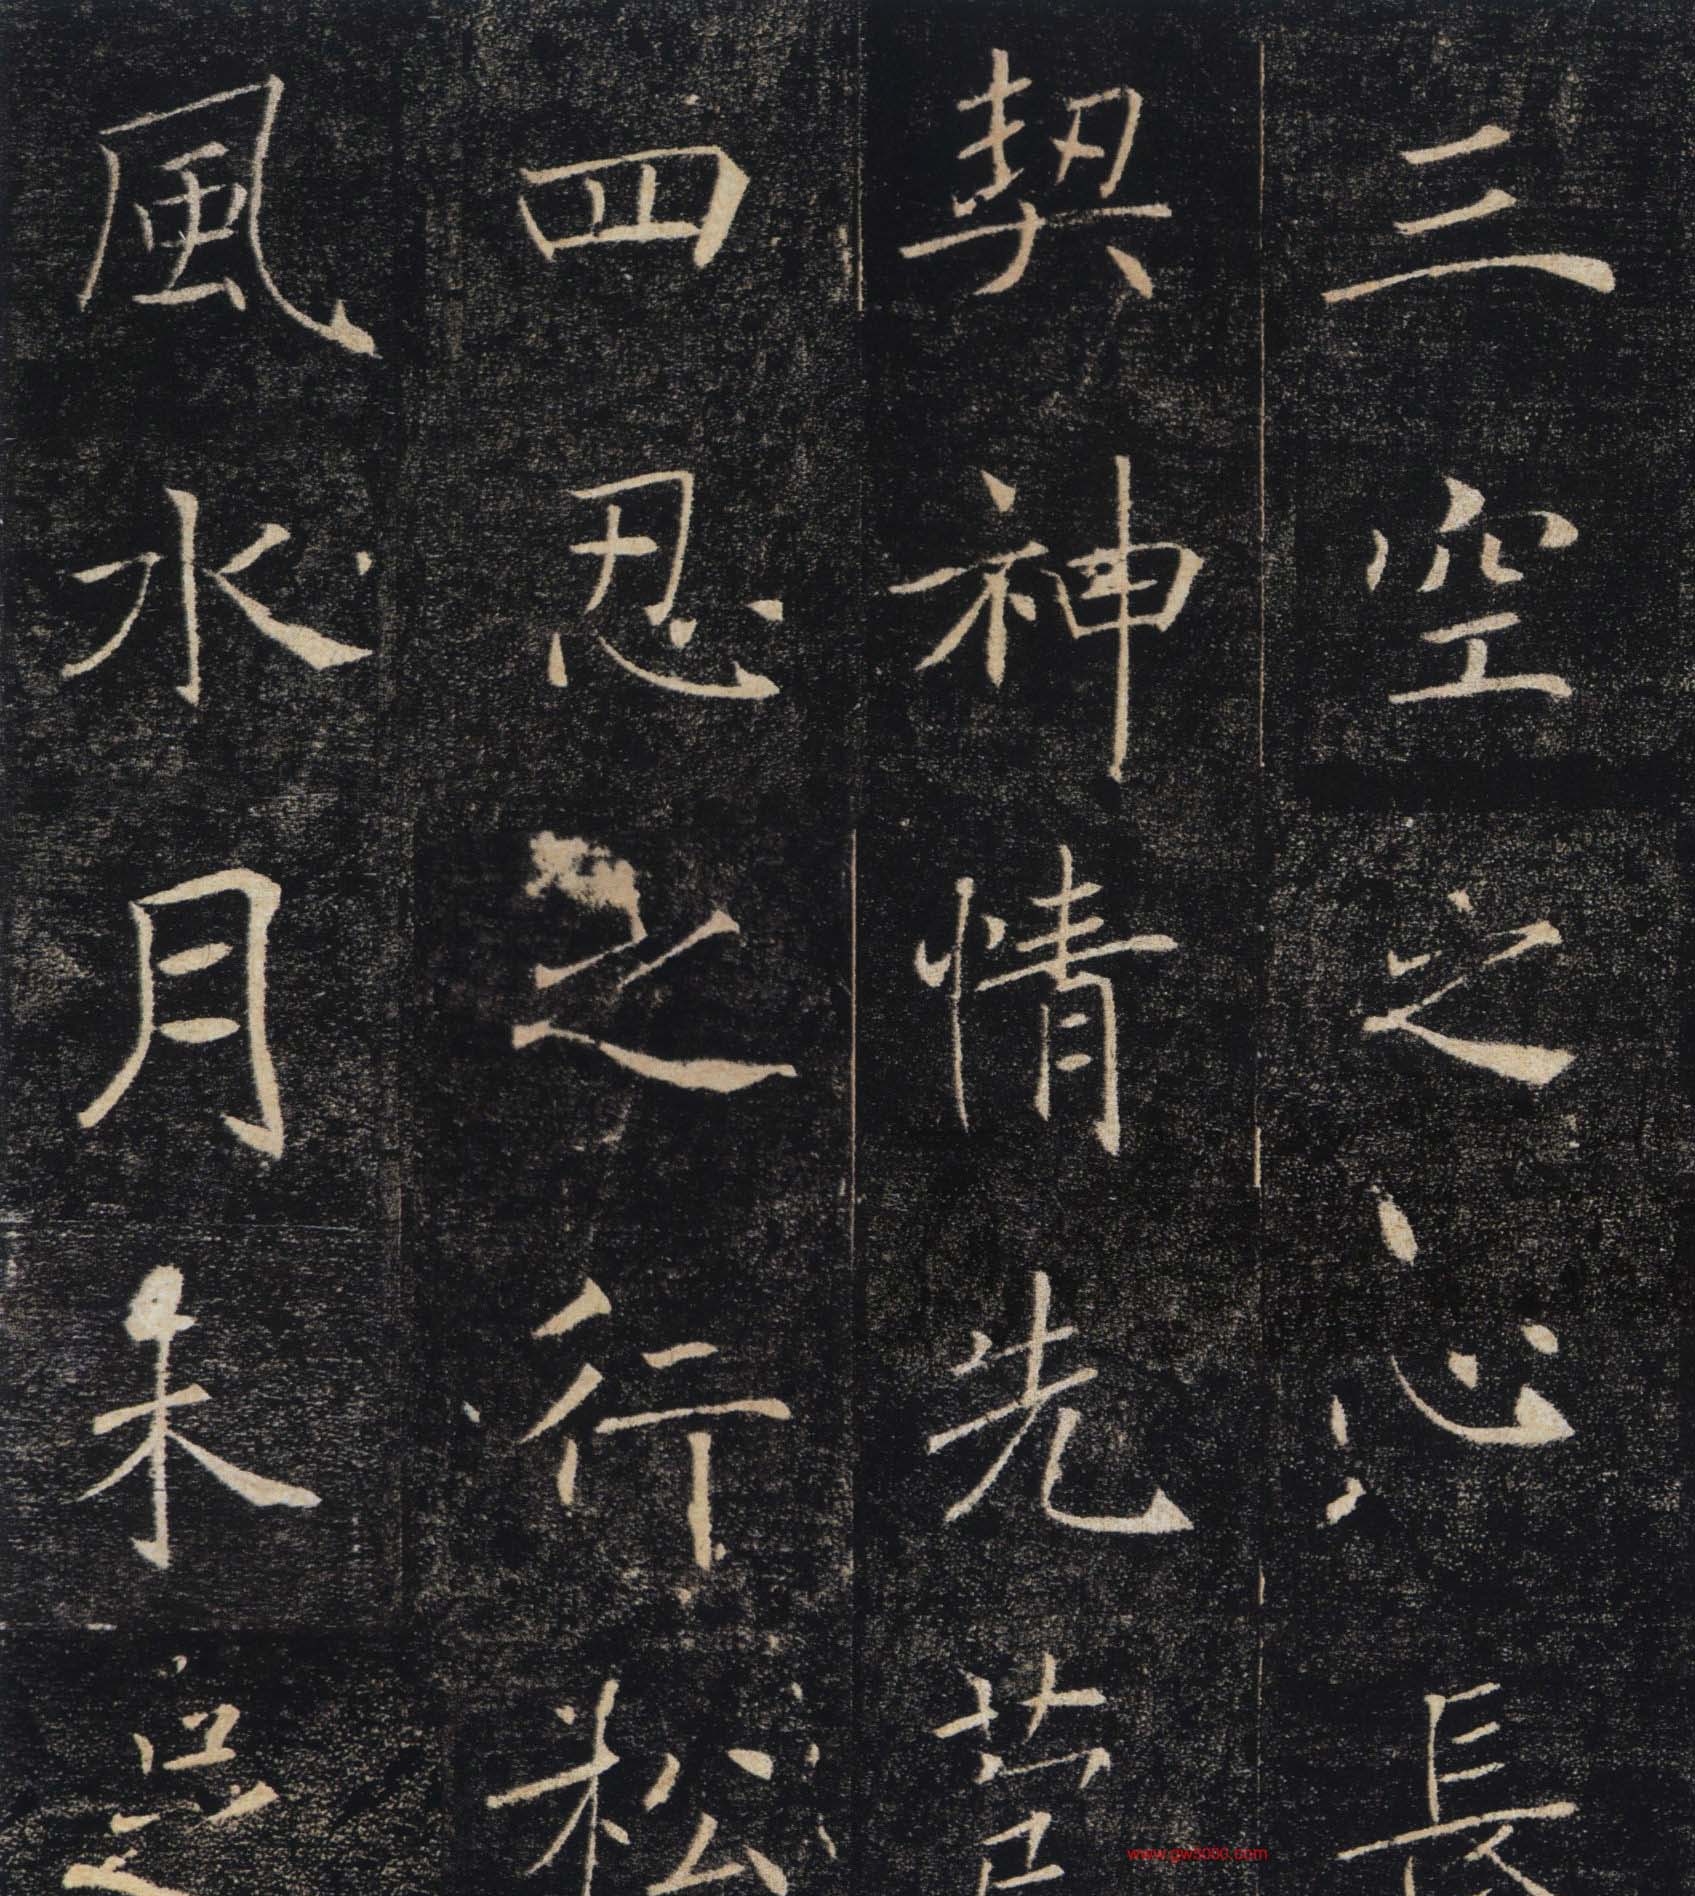 三空之心長
契神情先苞
四忍之行松
風水月未足
www.gw5080.com